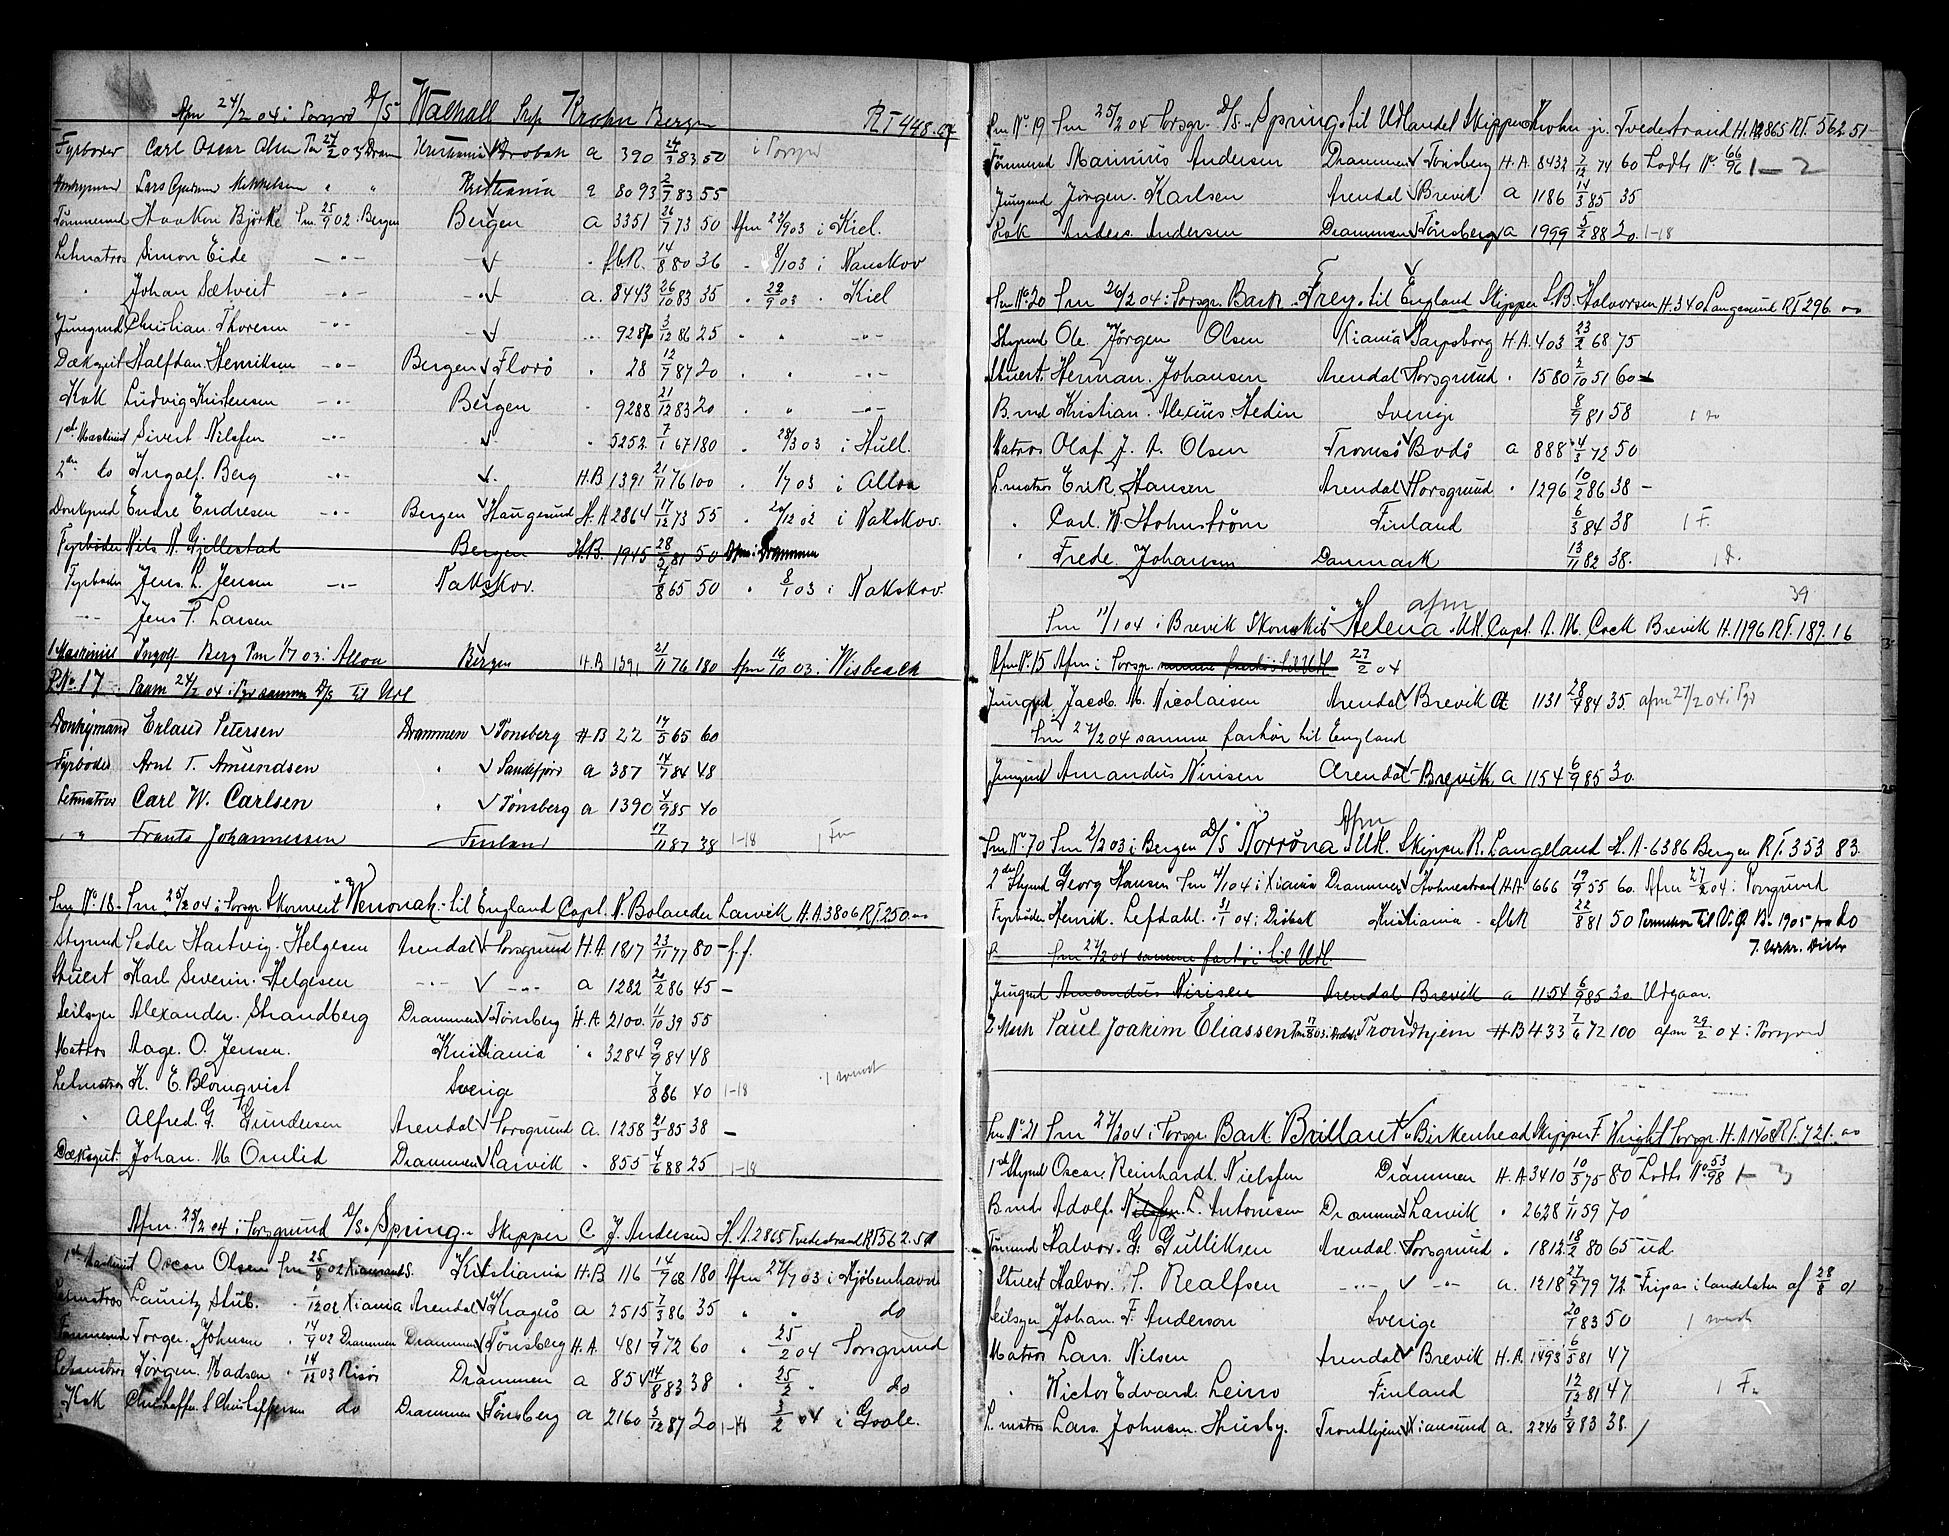 Afm 24/2 04 i Porsgrd D/S Walhall Skp Krohn Bergen RT 448.97
Fyrböder Carl Oscar Olsen Pm 27/2 03 Dram Kristiania Drobak a 390 24/3 83 50 i Porsgr
Donkeymand Lars Gudmun Mikkelsen " " Kristiania a 8093 2/7 83 55
Tömmermd Haakon Björke Pm 25/9 02 i Bergen Bergen a 3351 26/7 73 50 Afm 22/9 03 i Kiel.
Letmatros Simon Eide - " - fbR. 14/8 80 36 - 8/1 03 i Nanskov
Johan Sætveit - " - a. 8443 26/10 83 35 22/9 03 Kiel
Jungmd Christian Thoresen - " - 9287 3/12 86 25 " " - " -
Dæksgut Halfdan Henriksen - " - Bergen Florö 28 12/7 87 20 " " - " -
Kok Ludvig Kristensen - " - Bergen 9288 21/12 83 20 " " - " -
1st Maskinist Sivert Nilsen - " - 5252 7/1 67 180 28/3 03 i Hull.
2den do Ingolf Berg - " - H.B 1391 21/11 76 100 1/7 03 i Alloa
Donkymd Endre Endresen - " - Bergen Haugesund H.A 2864 17/12 73 55 20/12 02 i Nakskov.
Fyrböder Nils N. Gjellestad Bergen H.B. 1945 28/5 81 50 Afm i Drammen
Fyrböder Jens L. Jensen - " - Nakskov. 7/8 65 50 8/1 03 i Nakskov
- " - Jens P. Larsen
1 Maskinist Ingolf Berg Pm 1/7 03 i Alloa Bergen H.B 1391 21/11 76 180 Afm 16/10 03 i Wisbeach
P.No. 17 Paam 24/2 04 i Pgr samme D/S til Udl
Donkeymand Erland Petersen Drammen Tönsberg H.B 22 17/5 65 60
Fyrböder Arnt T. Amundsen " Sandefjord a 387 14/7 84 48
Letmatros Carl W. Carlsen " Tönsberg a 1390 4/9 85 40
" " Frants Johannessen Finland 17/11 87 38 1-18 1 Fn
Pm No 18. Pm 25/2 04 i Porsgr. Skonnert Wenonah til England Capt. N. Bolander Larvik H.A. 3806 RT. 250.00
Styrmd Peder Hartvig Helgesen Arendal Porsgrund H.A. 1817 23/11 77 80 - f.f.
Stuert Karl Severin Helgesen - " - - " - a 1282 20/2 86 45 -
Seilsyer Alexander Strandberg Drammen Tönsberg H.A. 2100. 1/10 39 55
Matros Aage. O. Jensen. Kristiania " 3284 9/9 84 48
Letmatros K. E. Blomqvist Sverige 7/8 86 40 1-18 1 svensk
" Alfred. G. Gundersen Arendal Porsgrund a. 1258 21/3 85 38 -
Dæksgut. Johan. M. Omlid Drammen Larvik " 855 4/6 88 25 1-18
Afm. 25/2 04 i Porsgrund D/S. Spring. Skipper C. J. Andersen H.A. 2865 Tvedestrand RT 562.51
1st Maskinist Oscar Olsen Pm 25/8 02 Xiansand S. Kristiania H.B 116 14/9 68 180 Afm 27/7 03 i Kjöbenhavn
Letmatros Lauritz Stub. " 1/12 02 Xiania Arendal Kragerö a 2515 7/3 86 35 " " do
Tömmermd Torger Johnsen " 14/9 02 Drammen Drammen Tönsberg H.A. 481 7/9 72 60 " 25/2 04 Porsgrund
Letmatros Jörgen Madsen " 14/12 03 Risör Drammen a 854 14/8 83 38 " 25/2 " do
Kok Christoffer S Christoffersen do Drammen Tönsberg a 2160 3/12 87 20 1-18 3/2 04 i Goole.
Pm No. 19 Pm 25/2 04 Porsgr. D/S. Spring til Udlandet Skipper Krohn jr. Tvedestrand H.A 2865 RT. 562.51
Tömmermd Marinius Andersen Drammen Tönsberg H.A. 8432 2/12 74 60 Lodts No. 66/96 1 - 2
Jungmd Jörgen Karlsen Arendal Brevik a 1186 14/3 85 35
Kok Anders. Andersen Drammen Tönsberg a 1999 5/2 88 20. 1-18
Pm No. 20 Pm 26/2 04 i Porsgr. Bark Frey til England Skipper S. B. Halvorsen H. 340 Langesund RT 296.00
Styrmd Ole Jörgen Olsen Xiania Sarpsborg H.A. 403 23/2 68 75
Stuert. Herman. Johansen Arendal Porsgrund " 1580 2/10 51 60
B.md Kristian. Alexius Hedin Sverige 8/9 81 58
Matros Olaf J. A. Olsen Tromsö Bodö a 888 4/3 72 50
L.matros Erik. Hansen Arendal Porsgrund " 1296 10/2 86 38 -
" Carl. W. Holmström Finland 6/3 84 38 1 F.
" Frede. Johansen Danmark 13/11 82 38. 1 D.
39
afm
Pm 11/1 04 i Brevik Skonskib Helena Udl. Capt. A. M. Cock Brevik H. 1196 RT. 189.16
Afm No. 15 Afm i Porsgr. samme fartöi til Udl 27/2 04
Jungmd Jacob. M. Nicolaisen Arendal Brevik a 1131 28/9 84 35 afm 27/2 04 i Pgr
Pm 27/2 04 samme fartöi til England
Jungmd Amandus Nirisen Arendal Brevik a 1154 6/9 85 30.
Afm
Pm No. 70 Pm 2/2 03 i Bergen D/S Norröna Udl. Skipper R. Langeland H.A - 6386 Bergen RT. 353 83.
2den Styrmd Georg Hansen Pm 4/1 04 i Xiania Drammen Holmestrand H.A. 666 19/9 55 60. Afm 27/2 04 i Porsgrund
Fyrböder Henrik. Lefdahl. 31/1 04 i Dröbak Kristiania - afbR 22/8 81 50 do
Pm 27/2 04 samme fartöi til Udl.
Jungmd Amandus Nirisen Arendal Brevik a 1154 6/9 85 30 Udgaar.
2 Mask Paul Joakim Eliassen Trondhjem H.B 433 7/6 72 100 afm 29/2 04 i Porsgrd
Pm No. 21 Pm 27/2 04 i Porsgr Bark Brillant Birkenhead Skipper F. Knight Porsgr. H.A 1468 RT. 721.00
1st Styrmd Oscar Reinhardt. Nielsen Drammen H.A. 3410 10/5 75 80 Lodts No. 53/98 1 - 3
B.md Adolf. Nilsen. L. Antonsen Drammen Larvik " 2628 1/11 59 70
Tömmd Halvor. G. Gulliksen Arendal Porsgrund " 1812 18/2 80 65 - ud.
Stuert Halvor. S. Realfsen - " - - " - a. 1218 27/9 79 72 - Fripas i landetaten af 28/8 01
Seilsyer Johan. F. Anderson Sverige 20/1 83 50 1 svensk
Matros Lars. Nilsen Arendal Brevik H.A. 1493 6/5 81 47
" Victor Edvard. Leino Finland 12/12 81 47. 1 F.
L.matros Lars. Johnsen Husby. Trondhjem Xiansund a. 2240 3/8 83 38.